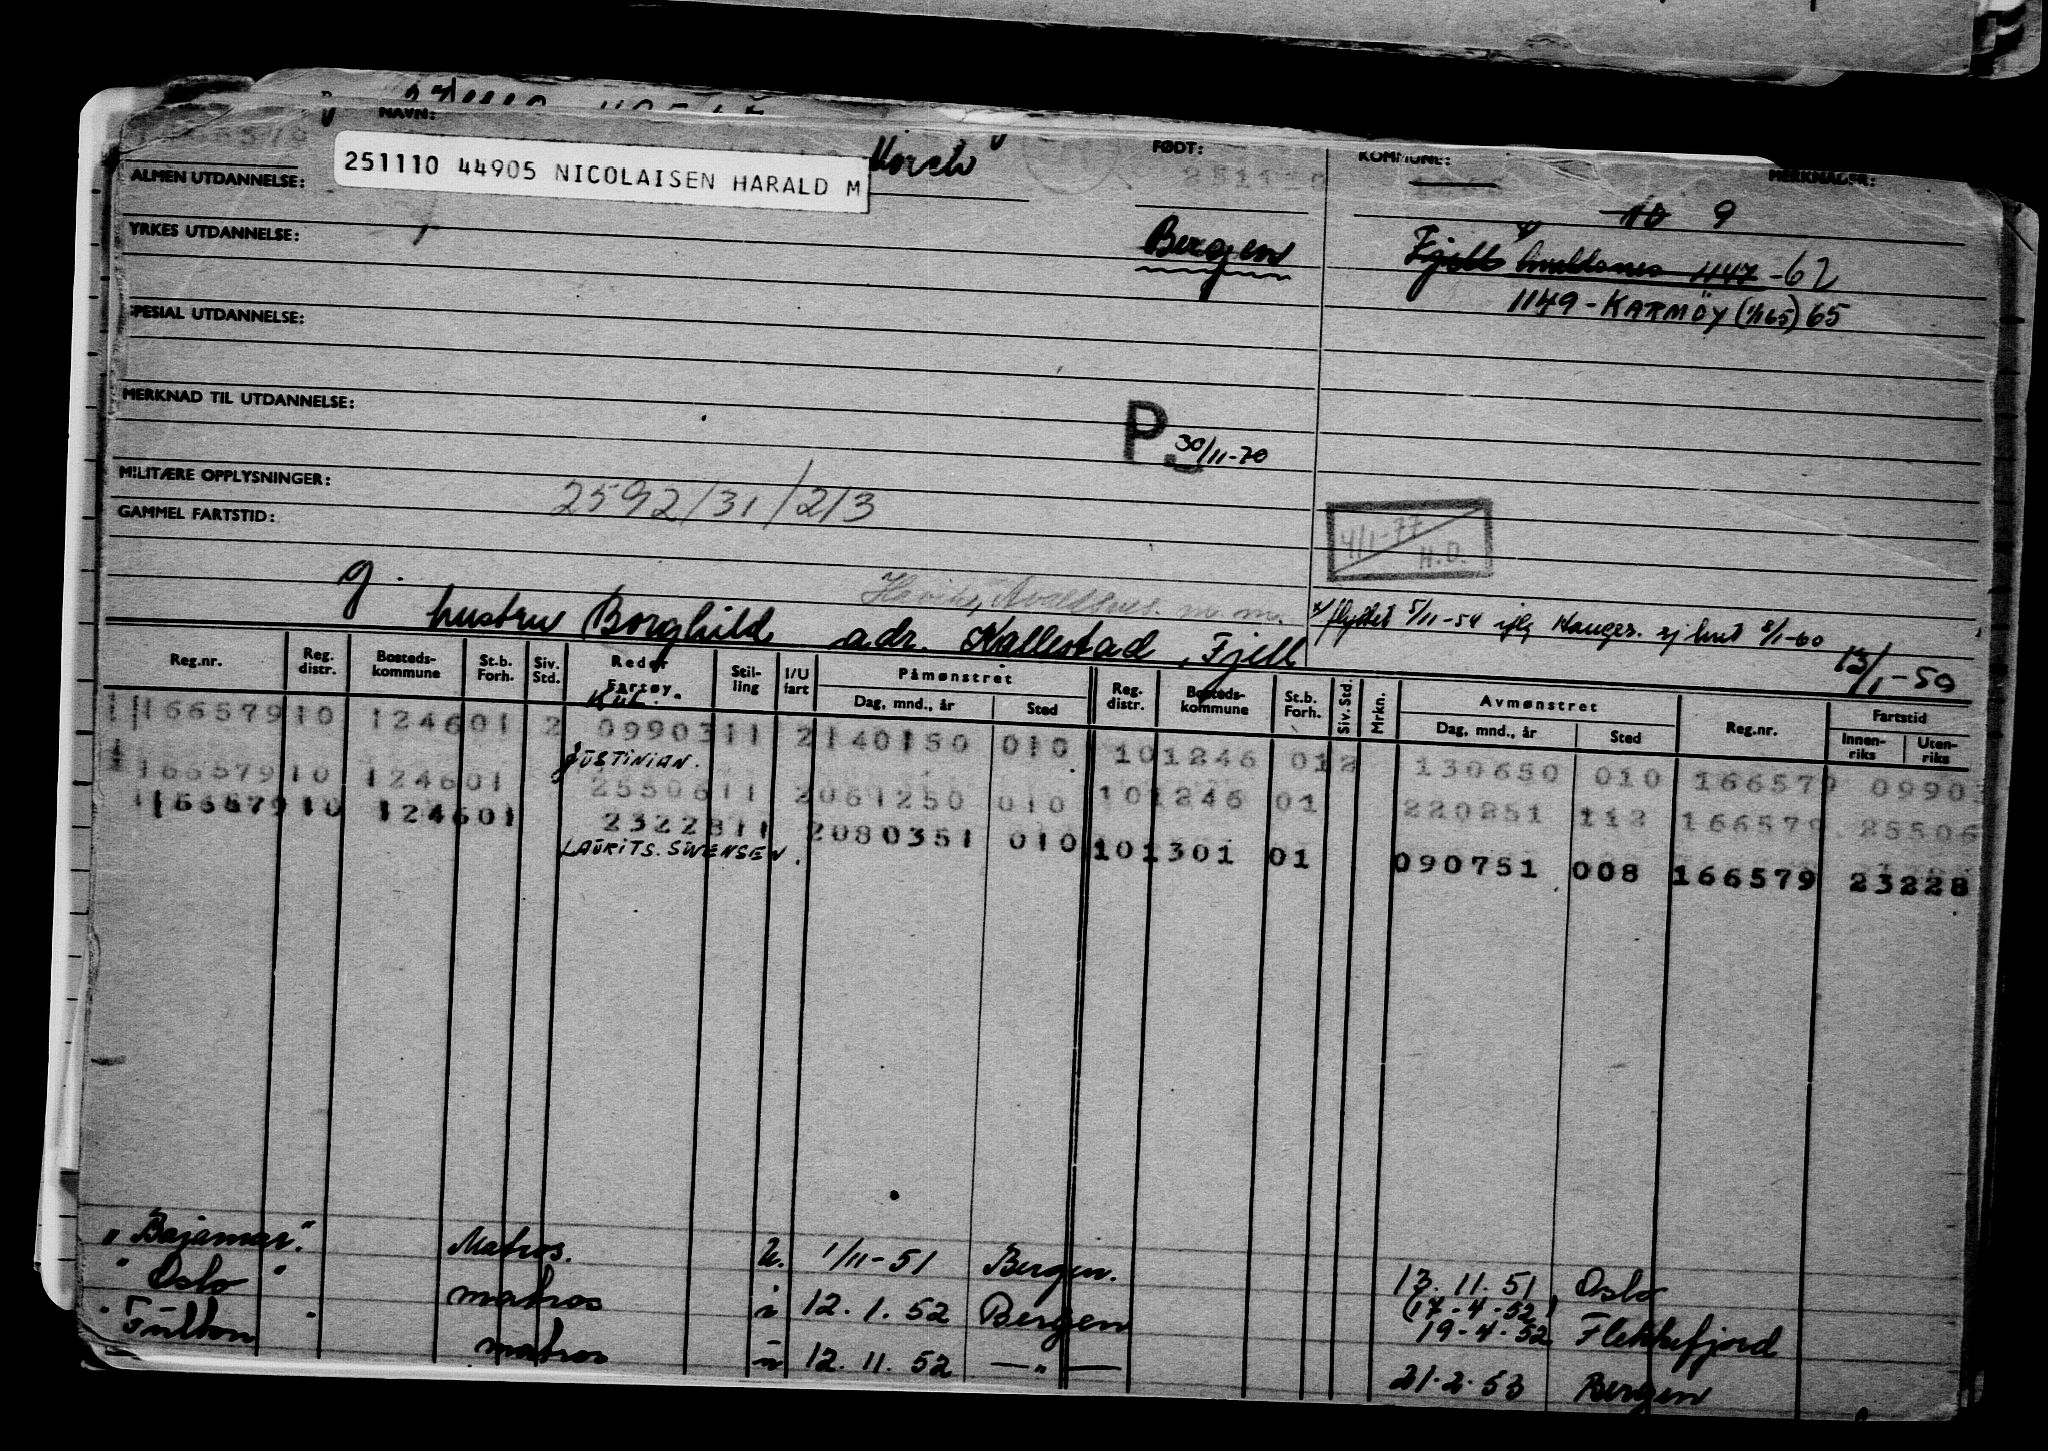 NAVN:
251110 44905 NICOLAISEN HARALD M
FØDT:
KOMMUNE:
MERKNADER:
ALMEN UTDANNELSE:
10 9
YRKES UTDANNELSE:
Bergen
Fjell 1147-62
1149-KARMÖY (1/1 65) 65
SPESIAL UTDANNELSE:
MERKNAD TIL UTDANNELSE:
P
30/11-70
MILITÆRE OPPLYSNINGER:
2592/31/2/3
GAMMEL FARTSTID:
4/1-77
H.O.
g.
hustru Borghild adr. Kallestad, Fjell
x/ flyttet 5/11-54 8/1-60
13/1-50
Reg.nr. Reg. distr. Bosteds-kommune St.b. Forh. Siv. Std. Reder Fartøy Stil-ling I/U fart Påmønstret Dag, mnd., år Sted Reg. distr. Bosteds-kommune St.b. Forh. Siv. Std. Mrkn. Avmønstret Dag, mnd., år Sted Reg.nr. Fartstid Innen-riks Uten-riks
166579 10 1246 01 2 0990311 2 140150 010 10 1246 01 2 130650 010 166579 0990
JUSTINIAN.
166579 10 1246 01 2550611 2 061250 010 10 1246 01 220251 112 166579 25506
166579 10 1246 01 2322811 2 080351 010 10 1301 01 090751 008 166579 23228
LAURITS. SWENSEN.
"Bajamar." Matros. U. 1/11-51 Bergen. 13.11.51 Oslo
" Oslo " matros i 12.1.52 Bergen (17-4-52) 19-4-52 Flekkefjord
" Fulton " matros 12.11.52 —"— 21.2.53 Bergen